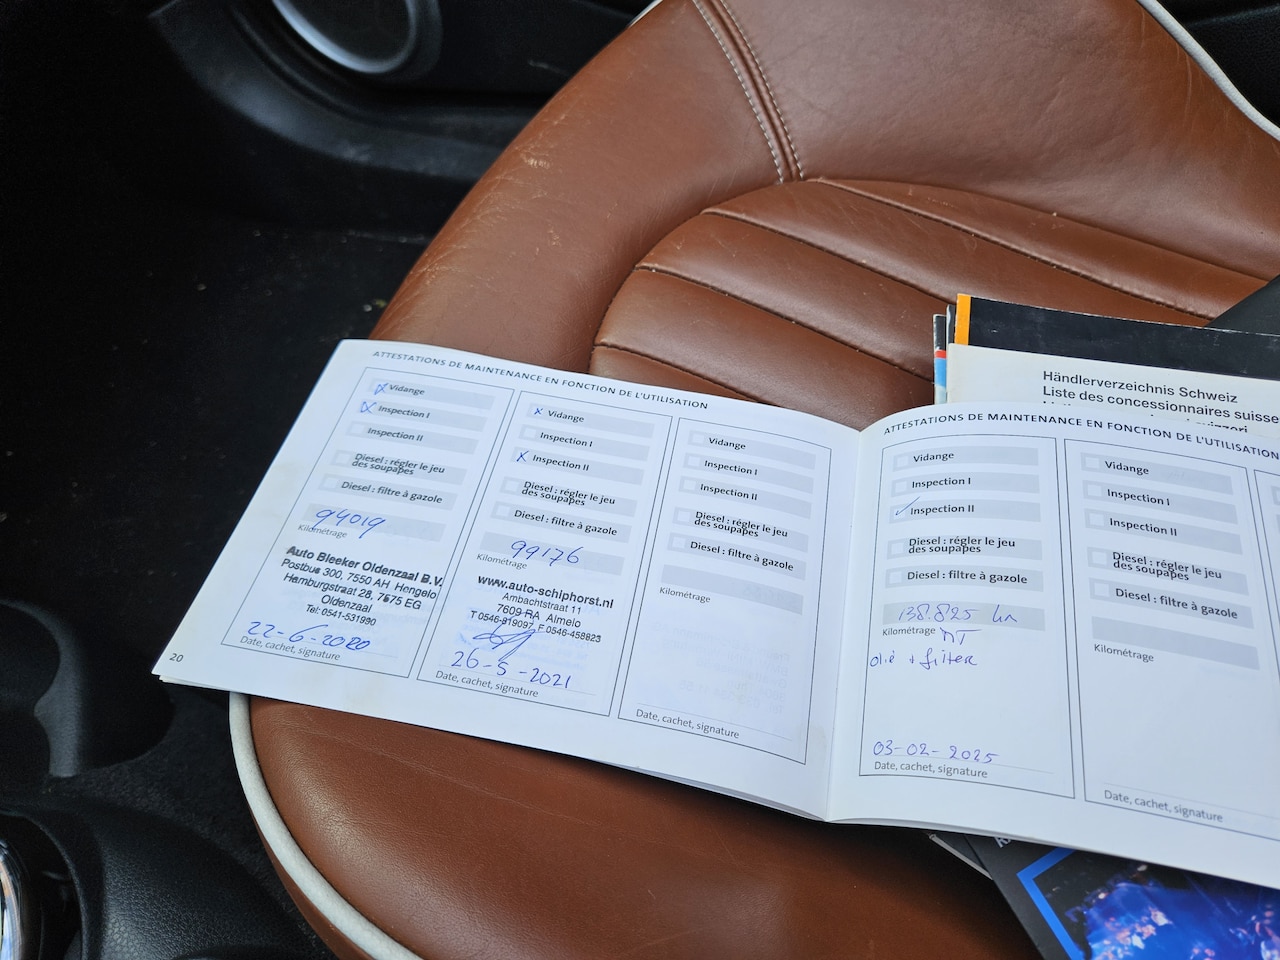 ATTESTATIONS DE MAINTENANCE EN FONCTION DE L'UTILISATION
Vidange
Inspection I
Inspection II
Diesel : régler le jeu
des soupapes
Diesel : filtre à gazole
94019
Kilométrage
Auto Bleeker Oldenzaal B.V.
Postbus 300, 7550 AH Hengelo
Hamburgstraat 28, 7575 EG
Oldenzaal
Tel: 0541-531990
22-6-2020
Date, cachet, signature
20
Vidange
Inspection I
Inspection II
Diesel : régler le jeu
des soupapes
Diesel : filtre à gazole
99176
Kilométrage
www.auto-schiphorst.nl
Ambachtstraat 11
7609 RA Almelo
T 0546-819097 F 0546-458823
26-5-2021
Date, cachet, signature
Vidange
Inspection I
Inspection II
Diesel : régler le jeu
des soupapes
Diesel : filtre à gazole
Kilométrage
Date, cachet, signature
Händlerverzeichnis Schweiz
Liste des concessionnaires suisse
ATTESTATIONS DE MAINTENANCE EN FONCTION DE L'UTILISATION
Vidange
Inspection I
Inspection II
Diesel : régler le jeu
des soupapes
Diesel : filtre à gazole
138.825 km
Kilométrage
olie + filter
03-02-2025
Date, cachet, signature
Vidange
Inspection I
Inspection II
Diesel : régler le jeu
des soupapes
Diesel : filtre à gazole
Kilométrage
Date, cachet, signature